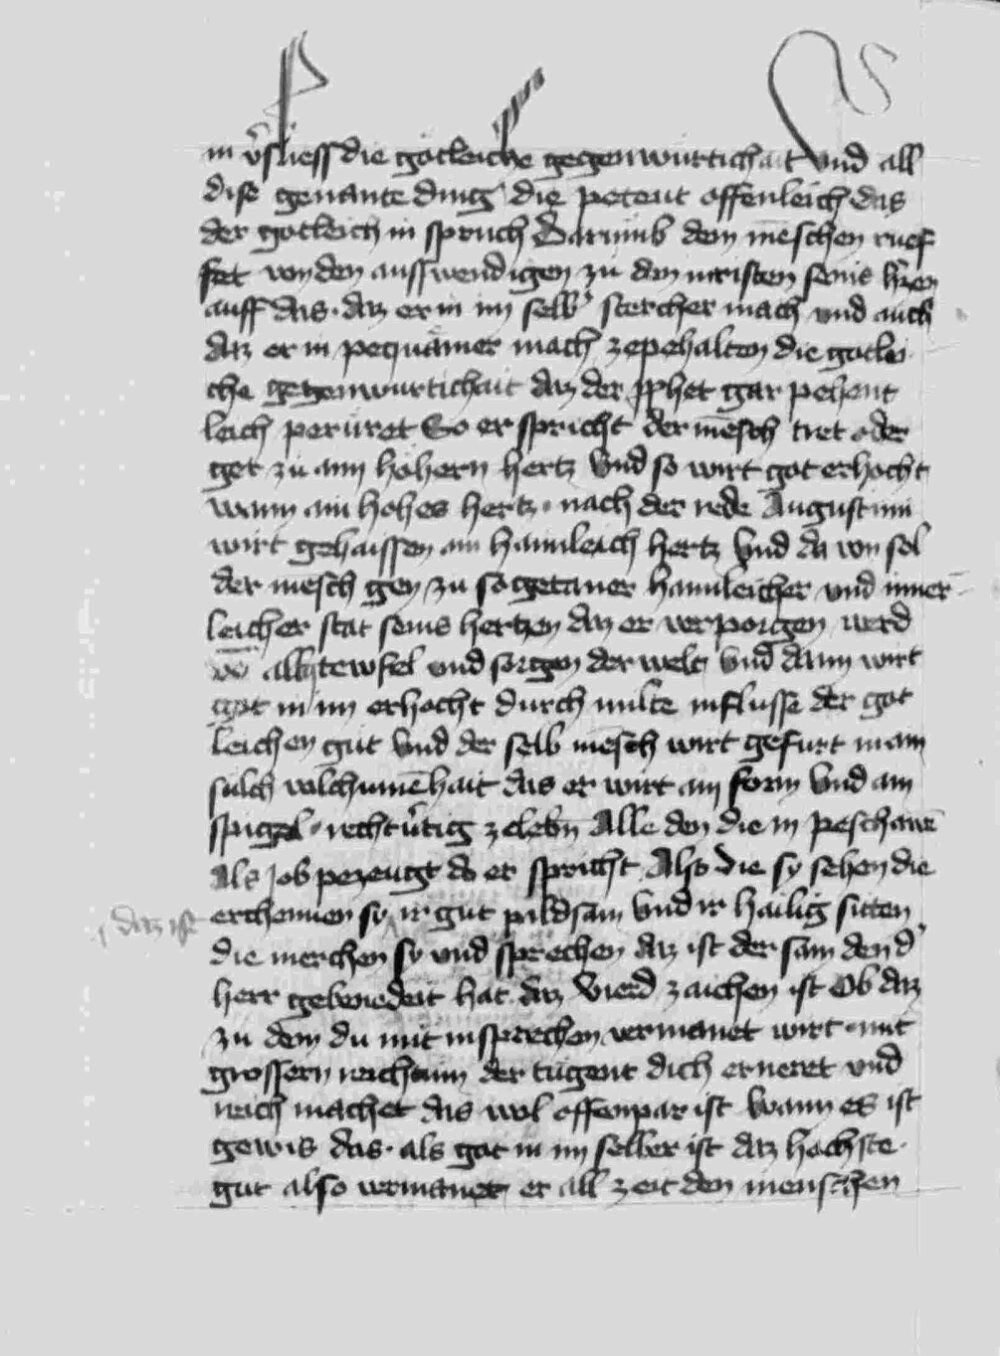 in v̓sliess die gotleiche gegenwürtichait Und all
dise genante ding die petent offenleich das
der gotleich in spruch Darumb dem mēschen ruef
fet von den auswendigen zu dem inristen seins h̓czen
auff das · daz er in im selb̓ stercher mach und auch
daz er in pequämer mach ze pehalten die gotlei
che gegenwurtichait daz der pphet gar pehent
leich perüret So er spricht der mēsch tret oder
get zu aim höhern hertz Und so wirt got erhöcht
wann ain hohes hertz · nach der rede Augustini
wirt gehaissen ain haimleich hertz Und da von sol
der mesch gen zu sogetaner haimleicher und inner
leicher stat seins hertzen daz er verporgen werd
vō allē tewfel und sorgen der welt Und dann wirt
got in im erhöcht durch milte influsse der got
leichen güt Und der selb mēsch wirt gefürt in ain
sülch volchumēhait das er wirt ain form Und ain
spigel · recht v̓tig ze lebn̄ Alle den die in peschawē
Als Job pezeugt do er spricht Also die sy sehen die
erchennen sy ir gut pildsam Und ir hailig sitten
daz ist
die merchen sy und sprechen daz ist der sam den d̓
herr gebenedeit hat · daz Vierd zaichen ist Ob daz
zu dem du mit insprechen vermanet wirt · mit
grossern reichtum der tugent dich erneret und
reich machet das wol offenpar ist Wann es ist
gewis das · als got in im selber ist daz höchste ·
gut also vermanet er all zeit den menschen